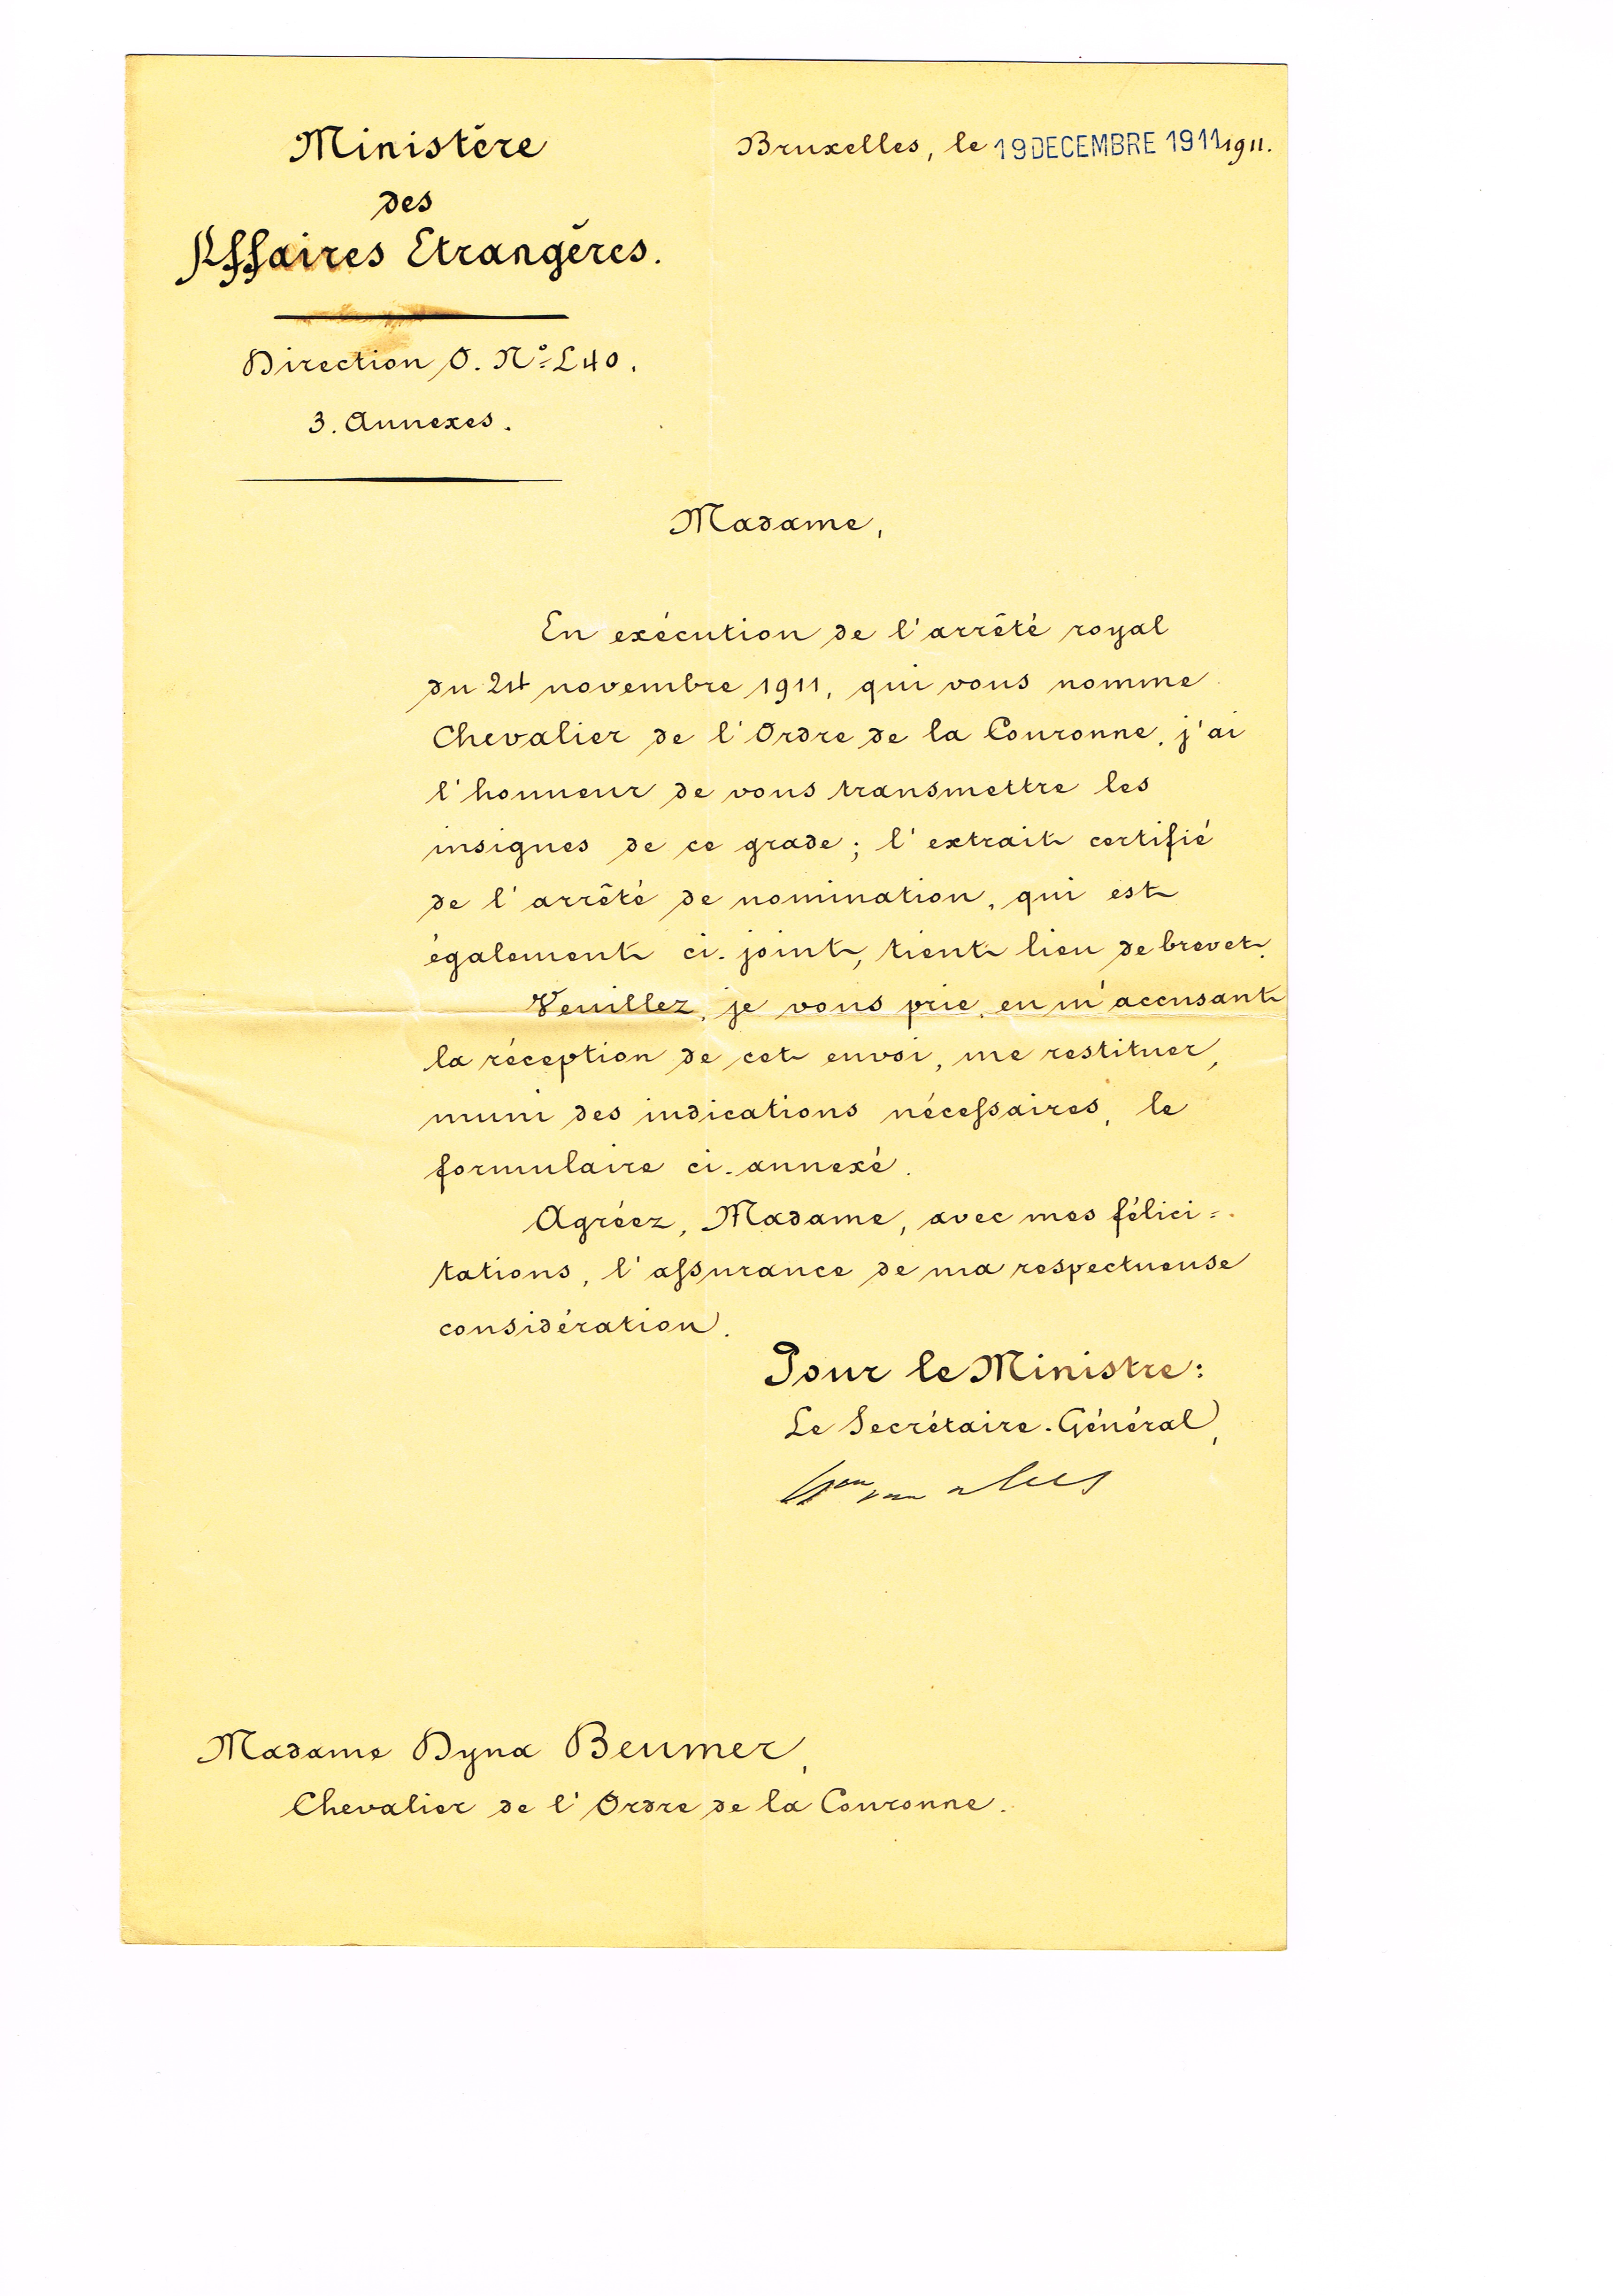 Ministère
des
Affaires Etrangères.
Bruxelles, le 19 DECEMBRE 1911 1911.
Direction O. Nº L 40.
3. Annexes.
Madame,
En exécution de l'arrêté royal
du novembre 1911, qui vous nomme
Chevalier de l'Ordre de la Couronne, j'ai
l'honneur de vous transmettre les
insignes de ce grade; l'extrait certifié
de l'arrêté de nomination, qui est
également ci-joint, tient lieu de brevet.
Veuillez, je vous prie, en m'accusant
la réception de cet envoi, me restituer,
muni des indications nécessaires, le
formulaire ci-annexé.
Agréez, Madame, avec mes félici=
tations, l'assurance de ma respectueuse
considération.
Pour le Ministre:
Le Secrétaire-Général,
Madame Dyna Beumer,
Chevalier de l'Ordre de la Couronne.